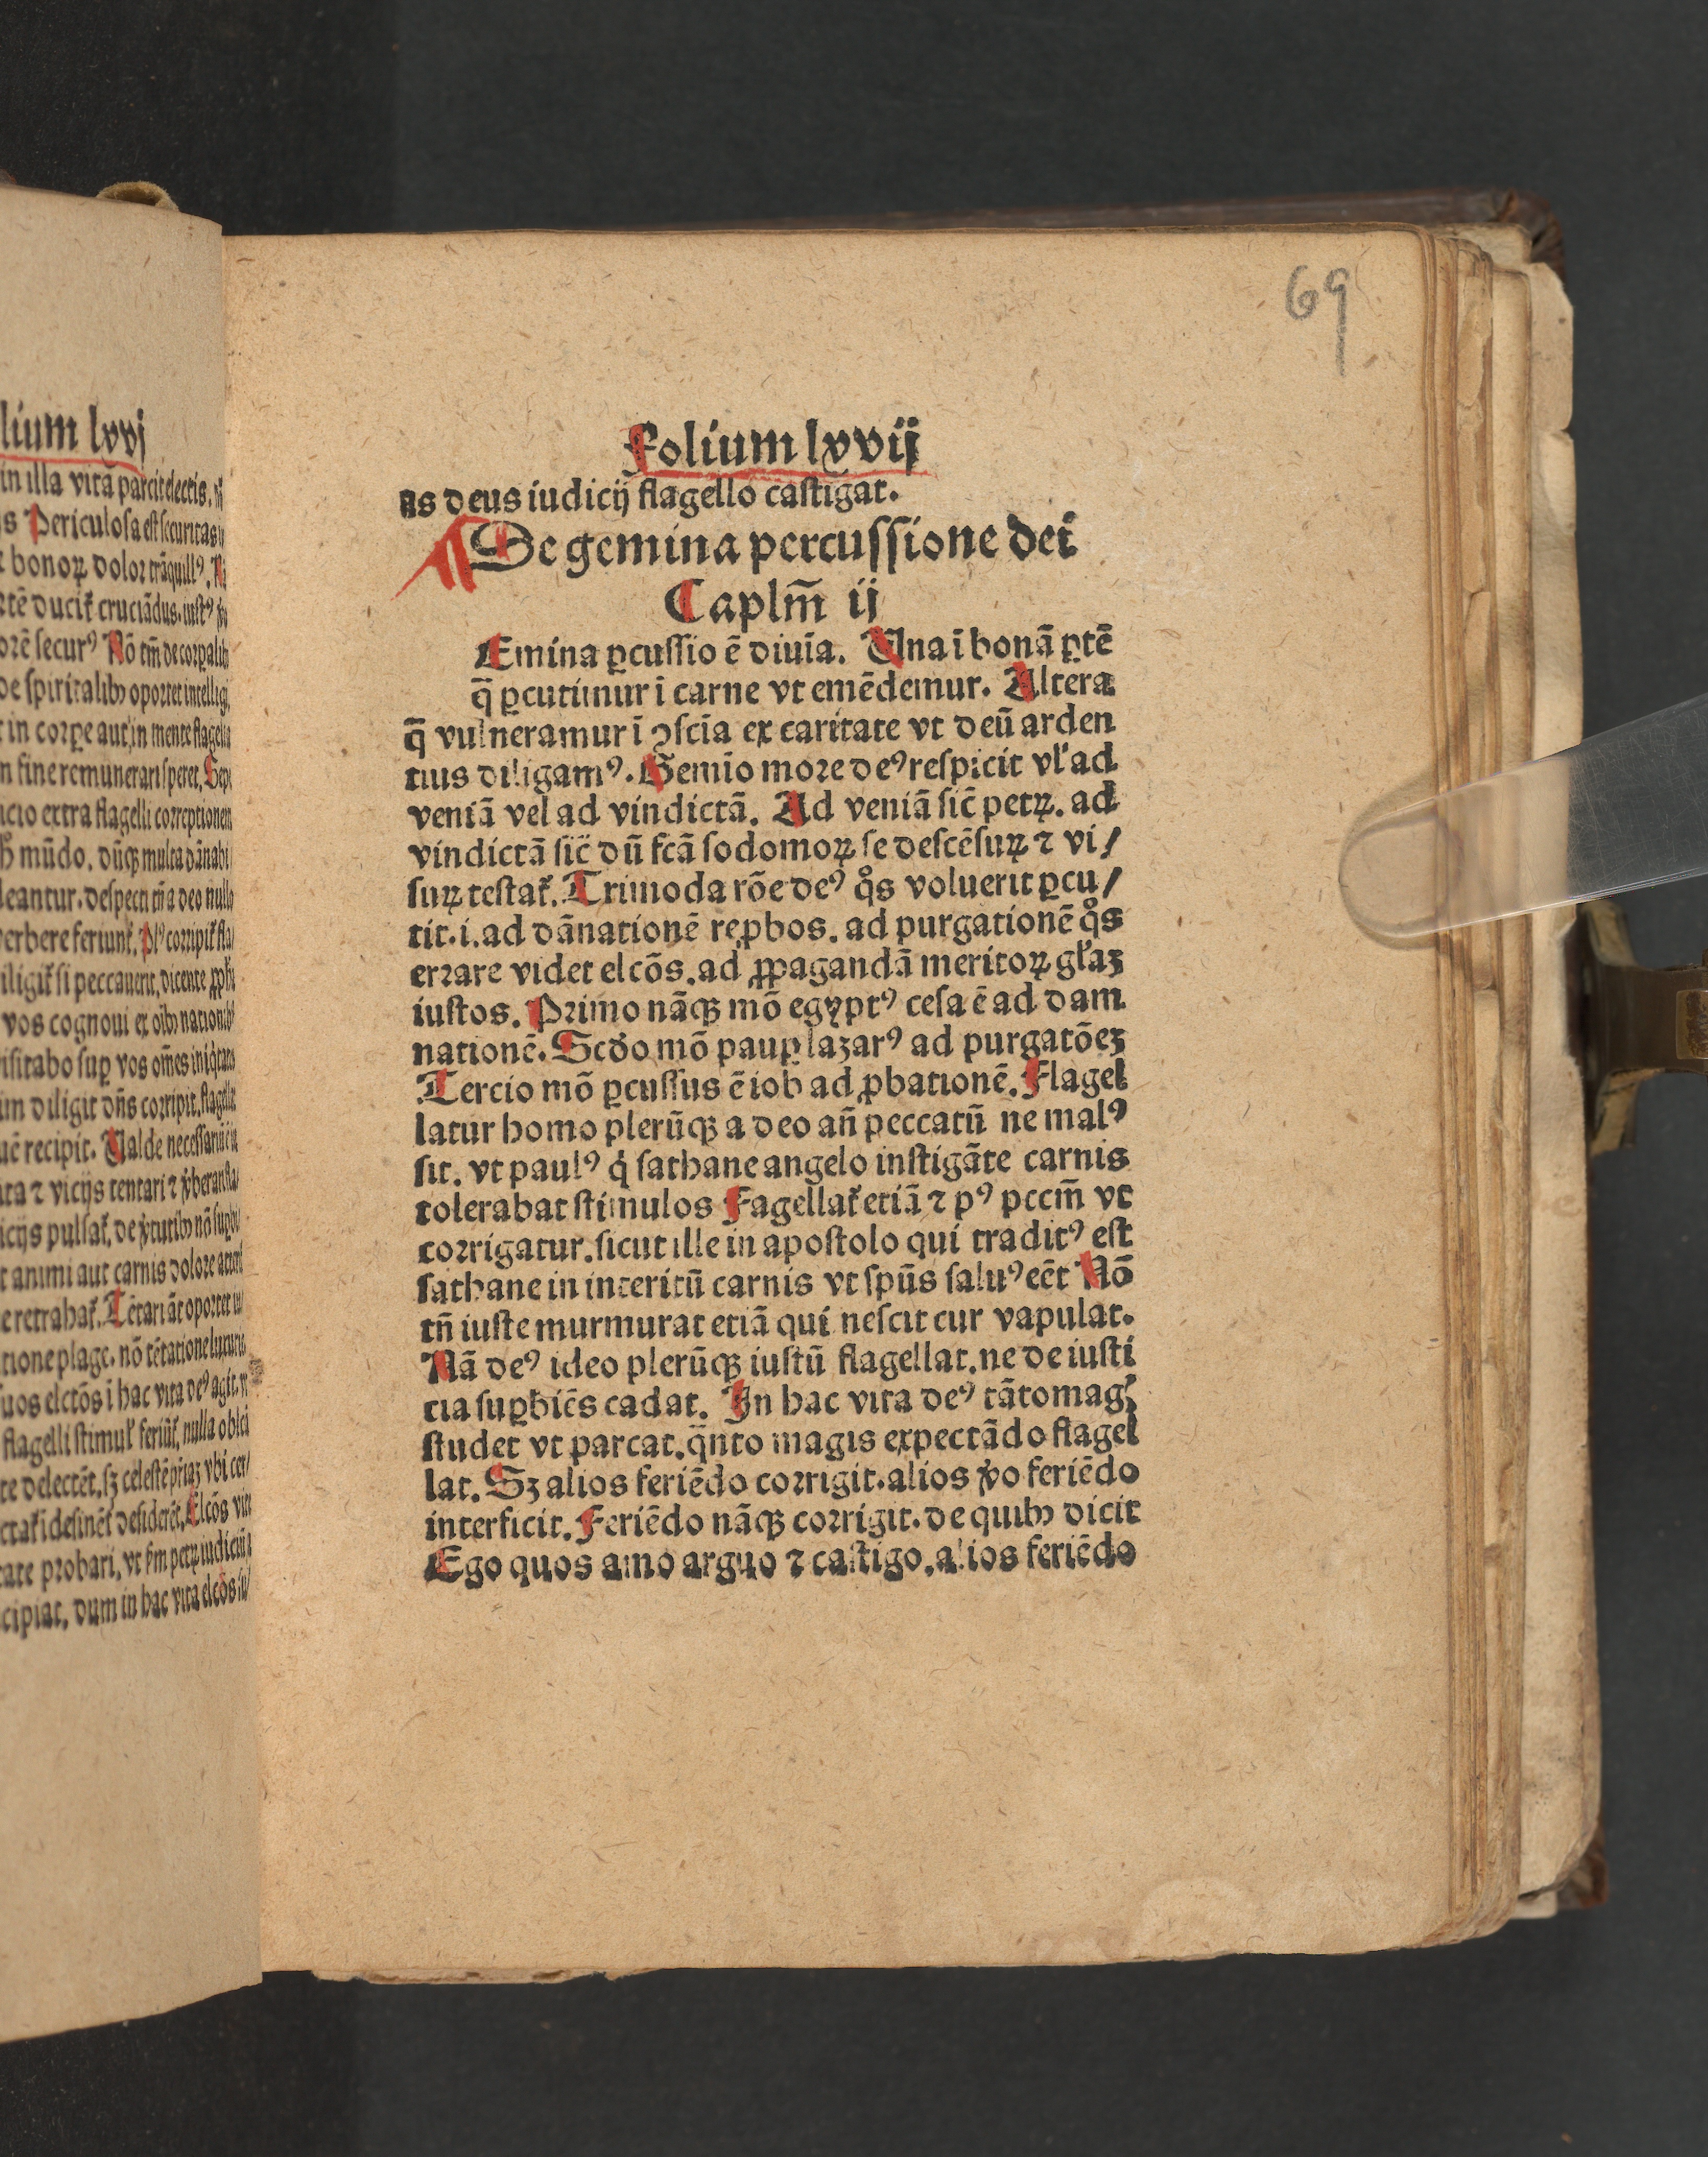 lium lxvj
in illa vita parcit electis.
s Periculosa est securitas
bonoꝝ dolor trãquillꝰ.
orẽ securꝰ Nõ tm̃ de corpalibꝫ
de spiritalibꝫ oportet intelligi
in corpe aut in mente flagella
n fine remunerari speret. Sepe
cio extra flagelli correptionem
mũdo. dũqꝫ multa dãnabi
leantur. despecti tñ a deo nulla
verbere feriunt̃.
iligit̃ si peccauerit, dicente
vos cognoui ex oĩbꝫ nationibꝫ
isitabo suꝑ vos om̃es iniqͥtates
m diligit dñs corripit. flagellat
uẽ recipit. Ualde necessariũ ẽ
ta ⁊ vicijs tentari ⁊
icijs pulsat̃. de
t animi aut carnis dolore
e retrahat̃. Tẽtari ãt oportet
tione plage. nõ tẽtatione luxurie
uos elctõs ĩ hac vita deꝰ agit.
flagelli stimul̃ feriũt̃. nulla oblec
te delectẽt. sꝫ celestẽ pr̃iaꝫ vbi cer/
ctat̃ i desinẽt̃ desiderẽt. Elcõs vite
tare probari. vt ẜm petꝝ iudiciũ a
cipiat. dum in hac vita elcõs iu/
69
Folium lxvij
as deus iudicij flagello castigat.
De gemina percussione dei
Caplm̃ ij
Emina ꝑcussio ẽ diuĩa. Una ĩ bonã ꝑtẽ
q̃ ꝑcutimur ĩ carne vt emẽdemur. Altera
q̃ vulneramur ĩ ꝯscĩa ex caritate vt deũ arden
tius diligamꝰ. Gemĩo more deꝰ respicit vl̓ ad
veniã vel ad vindictã. Ad veniã sic̃ petꝝ. ad
vindictã sic̃ dũ fcã sodomoꝝ se descẽsuꝝ ⁊ vi/
suꝝ testat̃. Trimoda rõe deꝰ qͦs voluerit ꝑcu/
tit. i. ad dãnationẽ reꝓbos. ad purgationẽ qͦs
errare videt elcõs. ad ꝓpagandã meritoꝝ gl̓aꝫ
iustos. Primo nãqꝫ mõ egyptꝰ cesa ẽ ad dam
nationẽ. Scďo mõ pauꝑ lazarꝰ ad purgatõeꝫ
Tercio mõ ꝑcussus ẽ iob ad ꝓbationẽ. Flagel
latur homo plerũqꝫ a deo añ peccatũ ne malꝰ
sit. vt paulꝰ qͥ sathane angelo instigãte carnis
tolerabat stimulos Fagellat̃ etiã ⁊ pꝰ pccm̃ vt
corrigatur. sicut ille in apostolo qui traditꝰ est
sathane in interitũ carnis vt spũs saluꝰ eẽt Nõ
tñ iuste murmurat etiã qui nescit cur vapulat.
Nã deꝰ ideo plerũqꝫ iustũ flagellat. ne de iusti
cia suꝑbiẽs cadat. In hac vita deꝰ tãtomag̃
studet vt parcat. q̃nto magis expectãdo flagel
lat. Sꝫ alios feriẽdo corrigit. alios ꝟo feriẽdo
interficit. Feriẽdo nãqꝫ corrigit. de quibꝫ dicit
Ego quos amo arguo ⁊ castigo. alios feriẽdo